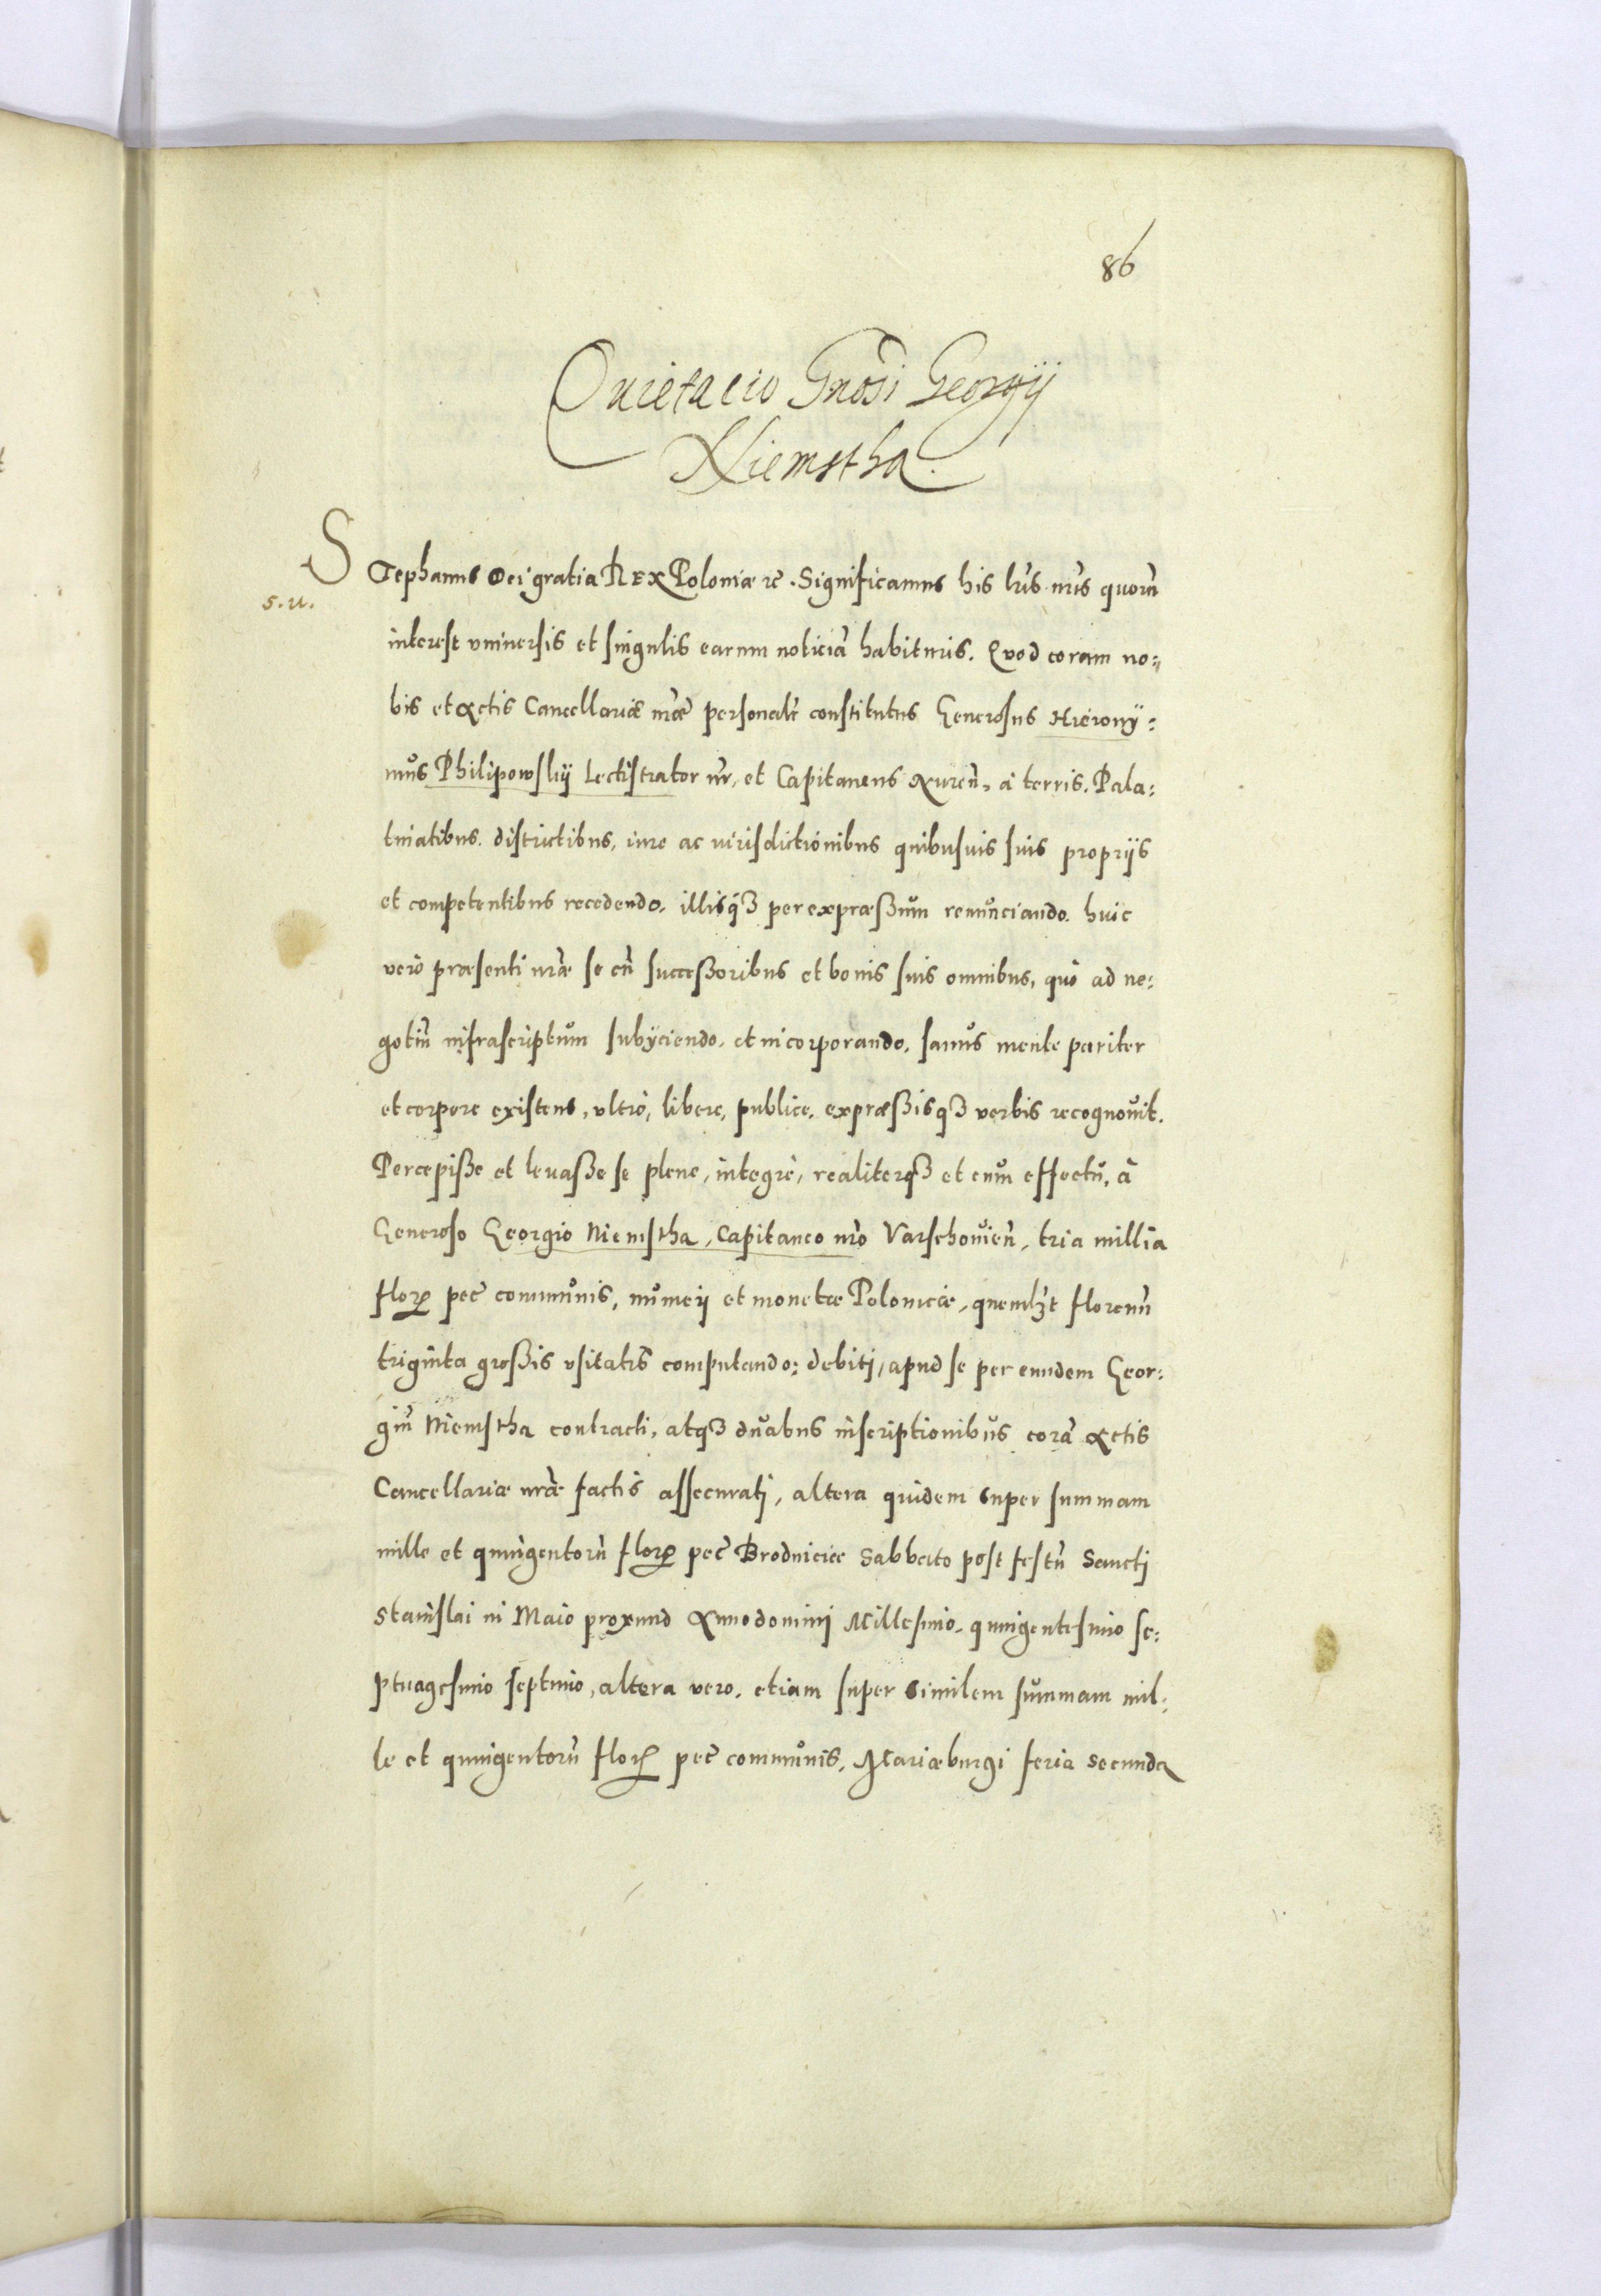 86
Quietacio Gnosi Georgij
Niemstha.
STephanus Dei gratia REX Poloniæ rc. Significamus his lris nris quorū
s. u.
interest vniuersis et singulis earum noticiā habituris. Quod coram no=
bis et Actis Cancellariæ nræ personalr constitutus Generosus Hierony=
mus Philipowskij Lectistrator nr, et Capitaneus Xuren. à terris. Pala=
tinatibus. districtibus, iure ac iurisdictionibus quibusuis suis proprijs
et competentibus recedendo. illisq3 per expræßum renunciando. huic
vero præsenti nræ se cū succeßoribus et bonis suis omnibus, quò ad ne=
gotiū infrascriptum subijciendo. et incorporando. sanus mente pariter
et corpore existens, vltrò, libere, publice. expræßisq3 verbis recognouit.
Percepiße et leuaße se plene, integrè, realiterq3 et cum effectu, à
Generoso Georgio Niemstha, Capitaneo nro Varschouień, tria millia
flor pec communis, numeri et monetæ Polonicæ, quemlzt florenū
triginta großis vsitatis computando: debiti, apud se per eundem Geor=
giū Niemstha contracti, atq3 duabus inscriptionibus corā Actis
Cancellariæ nræ factis assecurati, altera quidem super summam
mille et quingentorū flor pec Brodniciæ Sabbato post festū Sancti
Stanislai in Maio proximo Anno domini Millesimo. quingentesimo se=
ptuagesimo septimo, altera vero. etiam super similem summam mil=
le et quingentorū flor pec communis, Mariæburgi feria secunda